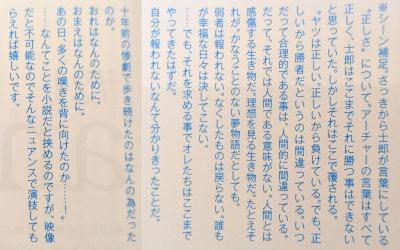 ※シーン補足。さっきから士郎が言葉にしている
〝正しさ〟について。アーチャーの言葉はすべて
正しく、士郎はここまでそれに勝つ事はできない
と思っていた。しかしそれはここで覆される。
〝ヤツは正しい。正しいから負けている。でも、正
しいから勝者だというのは間違っている。いつ
だって合理的である事は、人間的に間違っている。
だって、それでは人間である意味がない。人間とは
感傷する生き物だ。理想を見る生き物だ。たとえそ
れが、かなうことのない夢物語だとしても。
弱者は報われない。なくしたものは戻らない。誰も
が幸福な日々は決してこない。
……でも、それを求める事でオレたちはここまで
やってきたはずだ。
自分が報われないなんて分かりきったことだ。
十年前の惨劇で歩き続けたのはなんの為だった
のか。
おれはなんのために。
おまえはなんのために。
あの日、多くの嘆きを背に向けたのか………！〟
……なんてことを小説だと挟めるのですが、映像
だと不可能なのでそんなニュアンスで演技しても
らえれば嬉しいです。